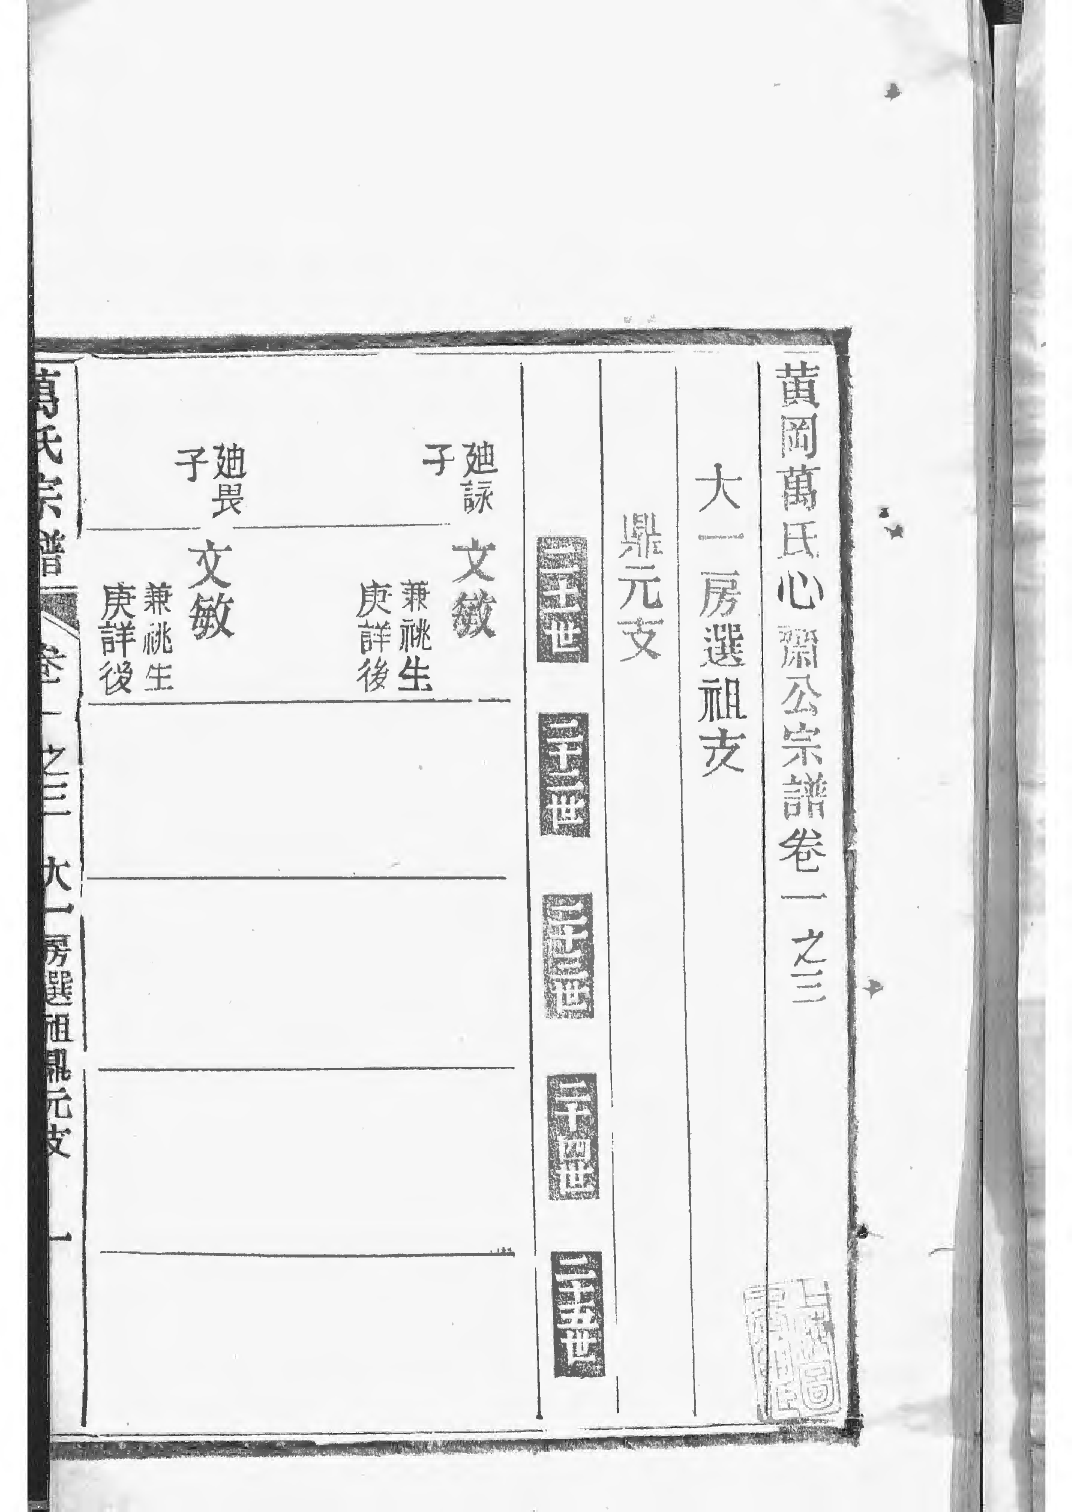 黄岡萬氏心齋公宗譜卷一之三
大一房選祖支
鼎元支
二十一世
二十二世
二十三世
二十四世
二十五世
廸詠
子
文敏
兼祧生
庚詳後
廸畏
子
文敏
兼祧生
庚詳後
萬氏宗譜
卷一之三
大一房選祖鼎元支
一